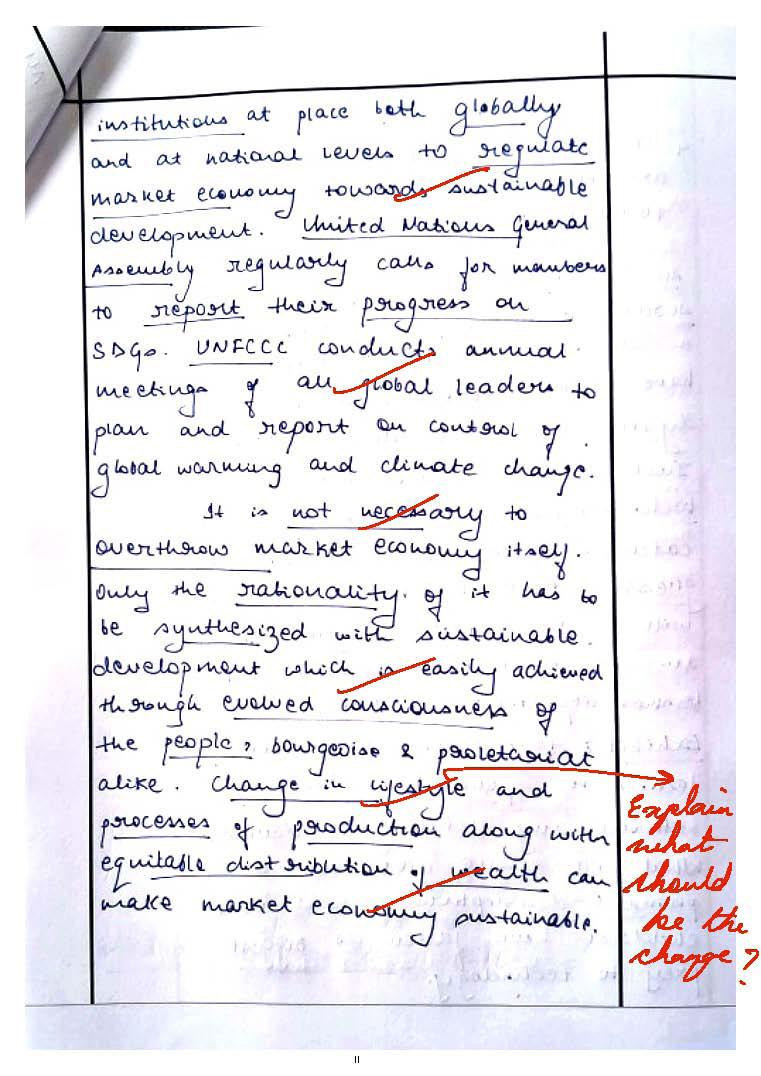 institutions at place both globally
and at national levels to regulate
market economy towards sustainable
development. United Nations General
Assembly regularly calls for members
to report their progress on
SDGs. UNFCCC conducts annual
meetings of all global leaders to
plan and report on control of
global warming and climate change.
It is not necessary to
overthrow market economy itself.
Only the rationality of it has to
be synthesized with sustainable
development which is easily achieved
through evolved consciousness of
the people, bourgeoise & proletariat
alike. Change in lifestyle and
processes of production along with
equitable distribution of wealth can
make market economy sustainable.
Explain
what
should
be the
change?
11